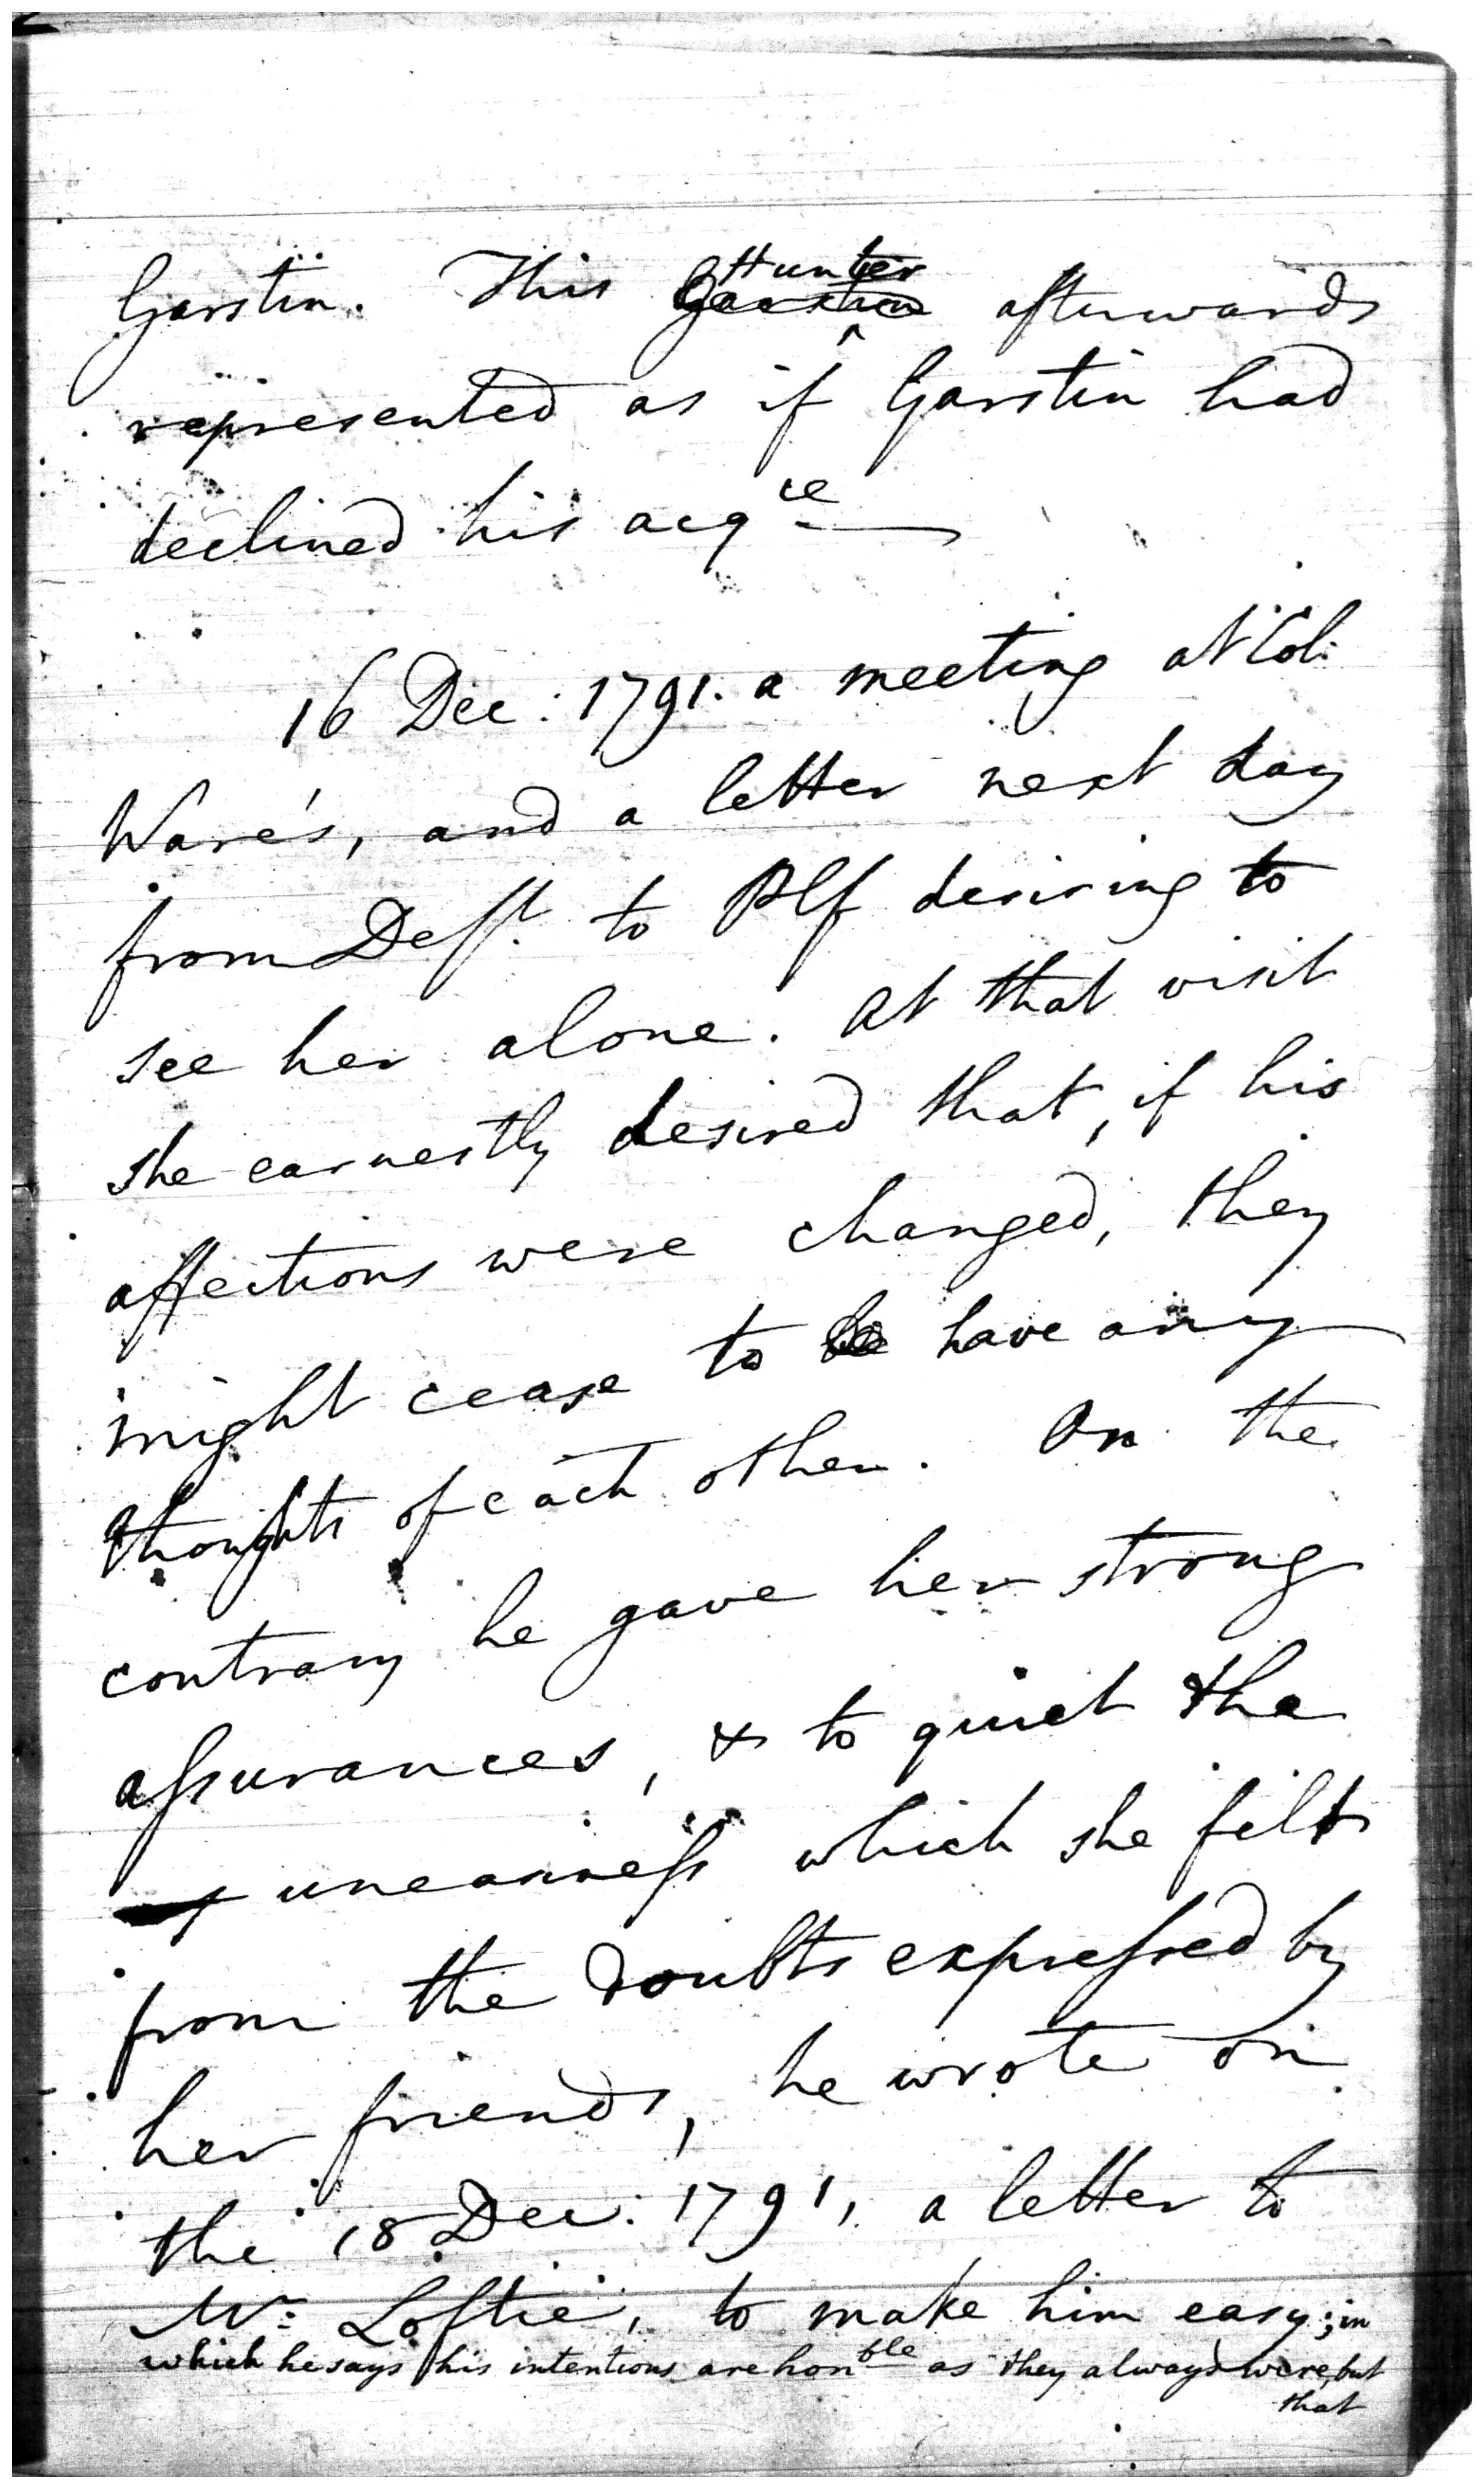 Garstin. This Garstin Hunter afterwards
represented as if Garstin had
declined his acqce
16 Dec: 1791. a meeting at Col:
Ware's, and a letter next day
from Deft. to Plf desiring to
see her alone. At that visit
she earnestly desired that, if his
affections were changed, they
might cease to be have any
thoughts of each other. On the
contrary he gave her strong
assurances, & to quiet the
uneasiness which she felt
from the doubts expressed by
her friends, he wrote on
the 18 Dec: 1791, a letter to
Mr: Loftie, to make him easy; in
which he says his intentions are honble as they always were, but
that